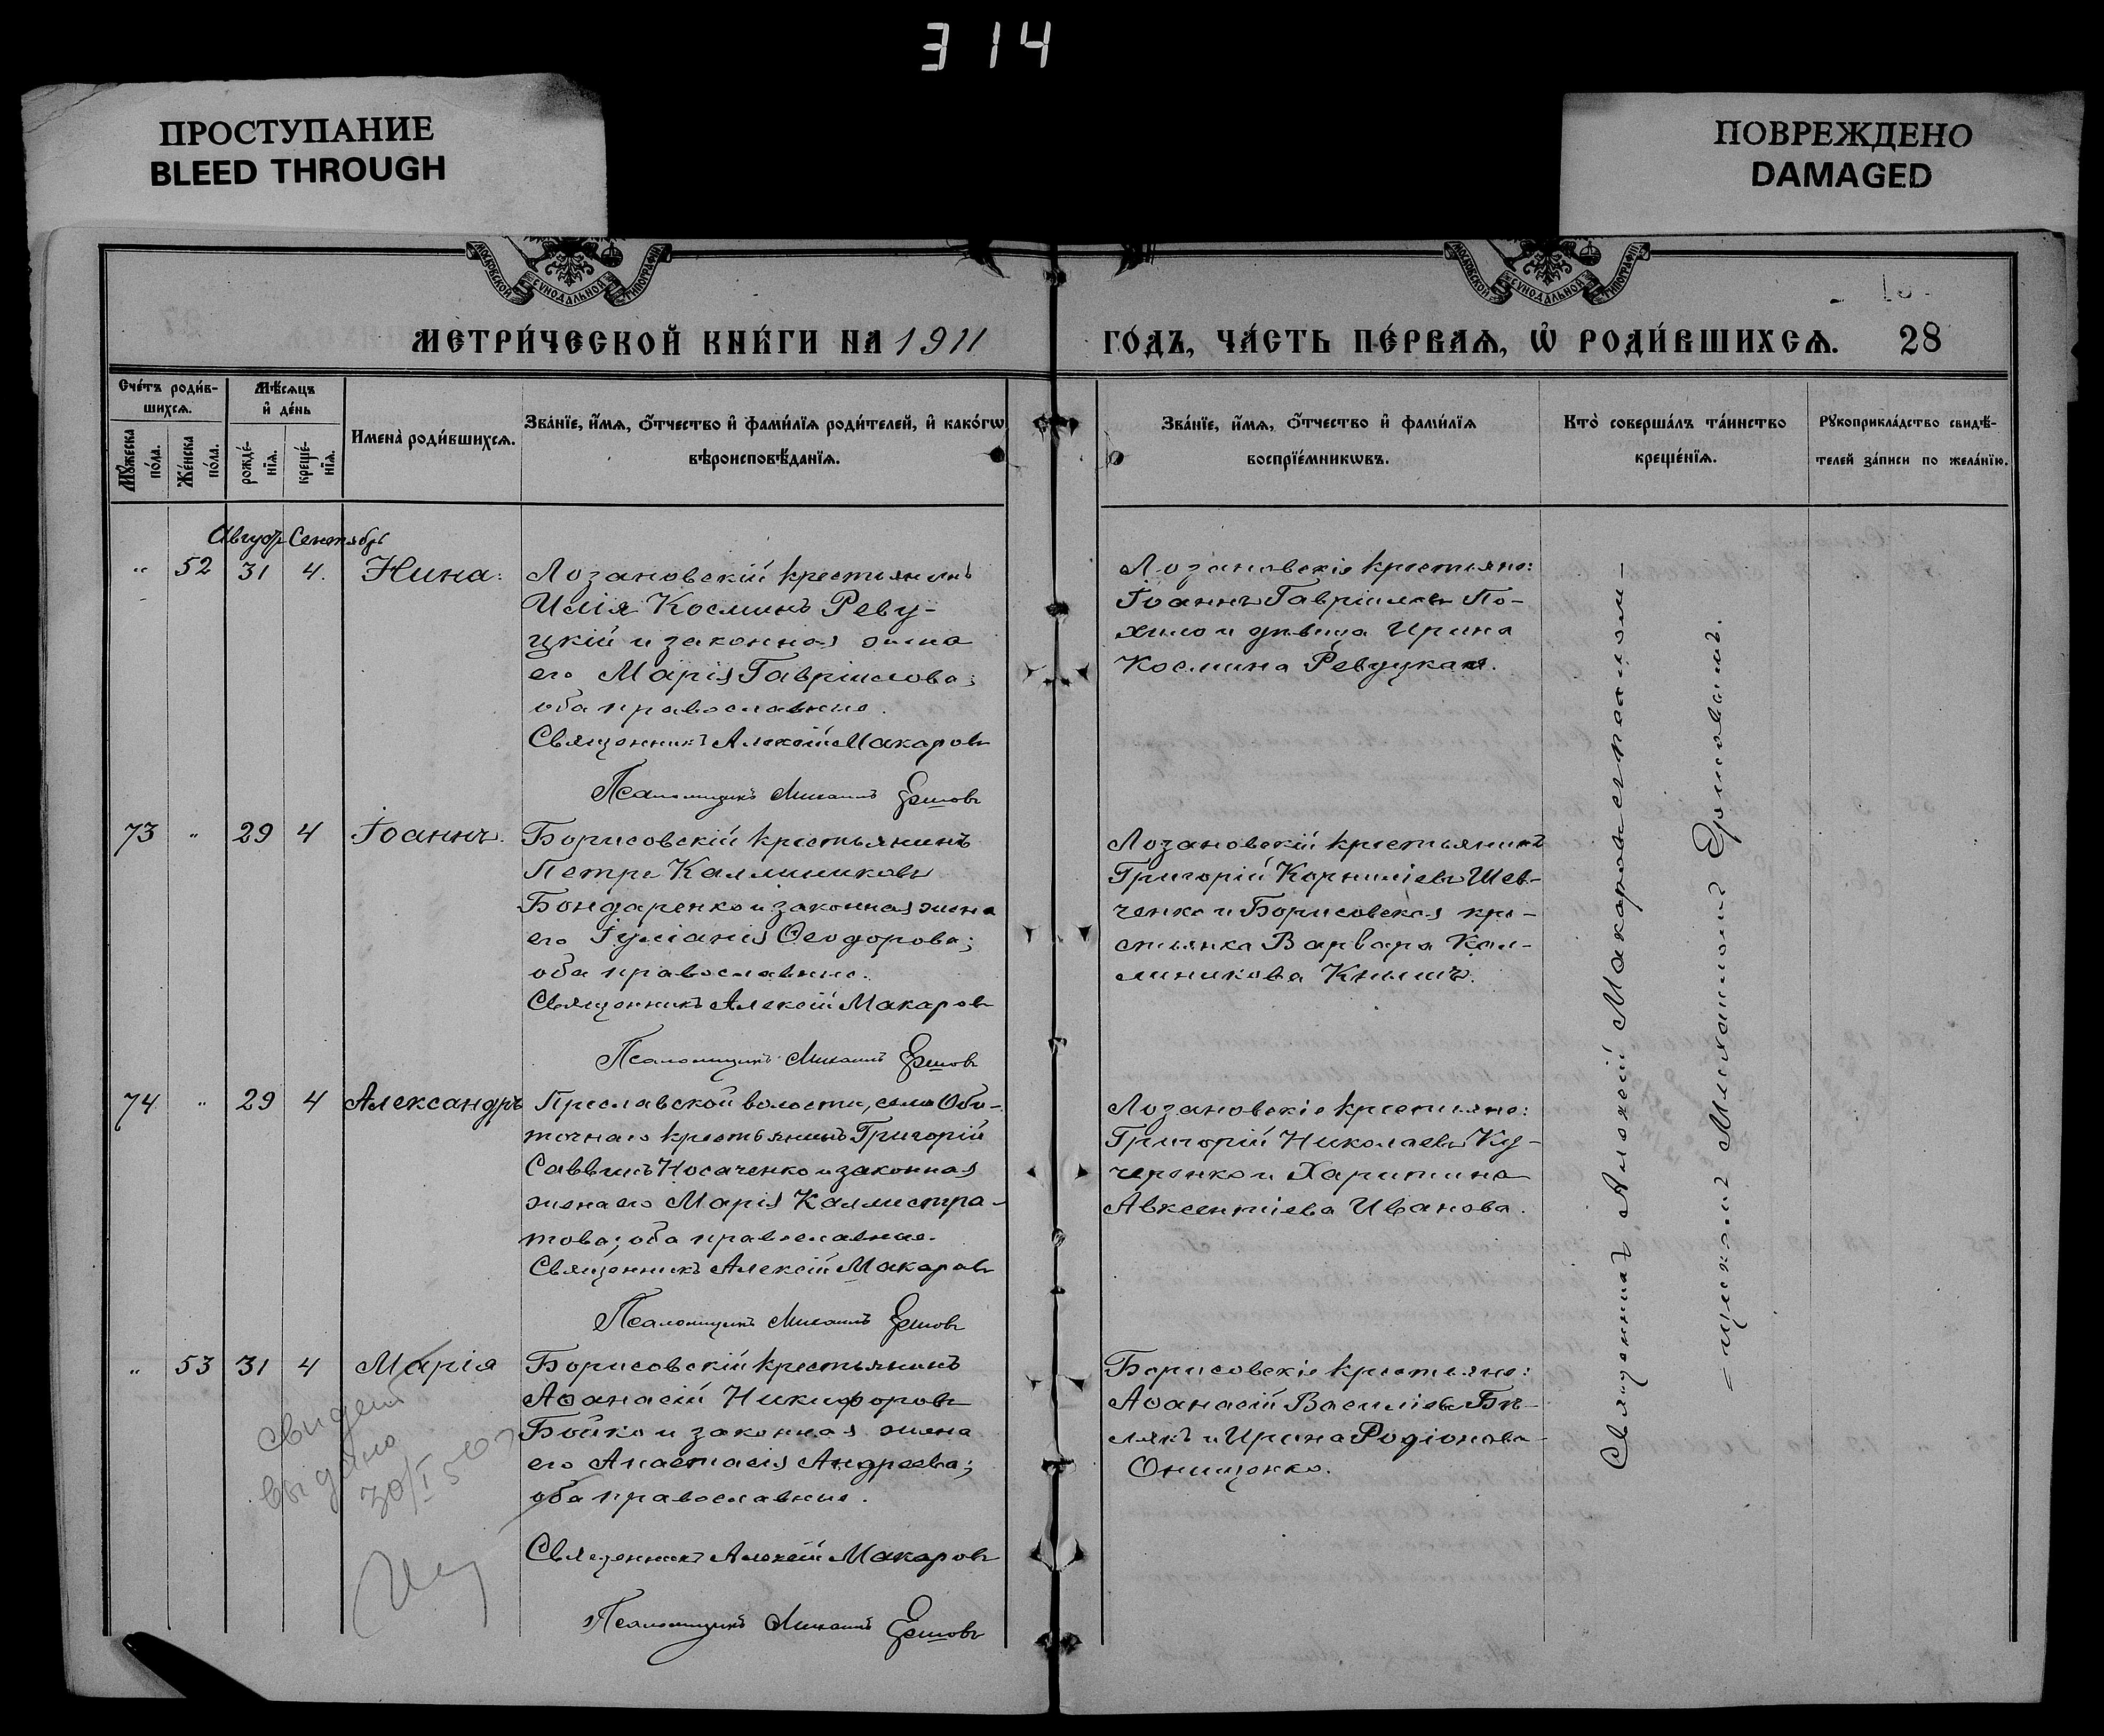 314
ПРОСТУПАНИЕ
BLEED THROUGH
ПОВРЕЖДЕНО
DAMAGED
МОСКОВСКОЙ СѴНОДАЛЬНОЙ ТИПОГРАФІИ
МОСКОВСКОЙ СѴНОДАЛЬНОЙ ТИПОГРАФІИ
МЕТРИ́ЧЕСКОЙ КНИ́ГИ НА 1911
ГО́ДЪ, ЧА́СТЬ ПЕ́РВАѦ, Ѡ҆ РОДИ́ВШИХСѦ. 28
Сче́тъ роди́в-
шихсѧ.
Мꙋ́жеска по́ла.
Же́нска по́ла.
Мѣ́сѧцъ
и҆ де́нь
рожде́-нїѧ.
креще́-нїѧ.
Имена̀ роди́вшихсѧ.
Зва́нїе, и҆́мѧ, ѻ҆́тчество и҆ фами́лїѧ роди́телей, и҆ како́гѡ
вѣроисповѣ́данїѧ.
Зва́нїе, и҆́мѧ, ѻ҆́тчество и҆ фами́лїѧ
воспрїе́мникѡвъ.
Кто̀ соверша́лъ та́инство
креще́нїѧ.
Рꙋкоприкла́дство свидѣ́-
телей за́писи по жела́нїю.
Август Сентябрь
" 52 31 4. Нина:
Лозановскій крестьянинъ
Илія Косминъ Реву-
цкій и законная жена
его Марія Гавріилова;
оба православные.
Священникъ Алексій Макаровъ
Псаломщикъ Михаилъ Ершовъ
Лозановскіе крестьяне:
Іоаннъ Гавріиловъ По-
хило и дѣвица Ирина
Космина Ревуцкая.
73 " 29 4 Іоаннъ.
Борисовскій крестьянинъ
Петръ Каллиниковъ
Бондаренко и законная жена
его Іуліанія Ѳеодорова;
оба православные.
Священникъ Алексій Макаровъ
Псаломщикъ Михаилъ Ершовъ
Лозановскій крестьянинъ
Григорій Корниліевъ Шев-
ченко и Борисовская кре-
стьянка Варвара Кал-
линикова Книшъ.
74 " 29 4 Александръ
Преславской волости, села Оби-
точнаго крестьянинъ Григорій
Саввинъ Носаченко и законная
жена его Марія Каллистра-
това; оба православные.
Священникъ Алексій Макаровъ
Псаломщикъ Михаилъ Ершовъ
Лозановскіе крестьяне:
Григорій Николаевъ Ку-
черенко и Харитина
Авксентіева Иванова.
" 53 31 4 Марія
Борисовскій крестьянинъ
Аѳанасій Никифоровъ
Бойко и законная жена
его Анастасія Андреева;
оба православные.
Священникъ Алексій Макаровъ
Псаломщикъ Михаилъ Ершовъ
Борисовскіе крестьяне:
Аѳанасій Василіевъ Бѣ-
лякъ и Ирина Родіонова
Онищенко.
свидет
выдано
30/I 50
Священникъ Алексій Макаровъ съ псалом-
щикомъ Михаиломъ Ершовымъ.